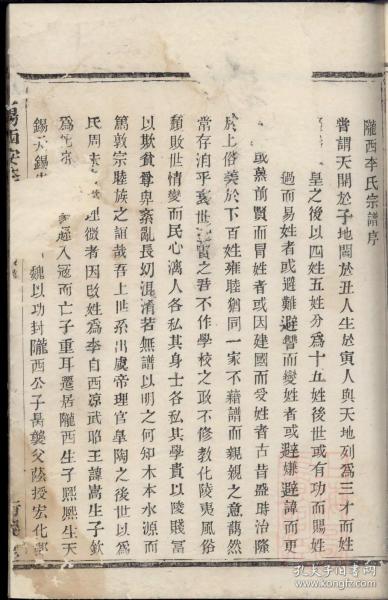 隴西李氏宗譜序
嘗謂天開於子地闢於丑人生於寅人與天地列為三才而姓
皇之後以四姓五姓分為十五姓後世或有功而賜姓
過而易姓者或避難避讐而變姓者或避嫌避諱而更
或慕前賢而冒姓者或因建國而受姓者古昔盛時治隆
於上俗美於下百姓雍睦猶同一家不藉譜而親親之意藹然
常存洎乎衰世之君不作學校之政不修教化陵夷風俗
頹敗世情變而民心漓人各私其身士各私其學貴以陵賤富
以欺貧尊卑紊亂長幼混淆若無譜以明之何知木本水源而
篤敦宗睦族之誼哉吾上世系出虞帝理官臯陶之後世以為
氏周 理徵者因改姓為李自西凉武昭王諱暠生子歆
為 入寇而亡子重耳遷居隴西生子熈熈生天
錫天錫生 魏以功封隴西公子昺襲父蔭授宏化
孔夫子旧书网